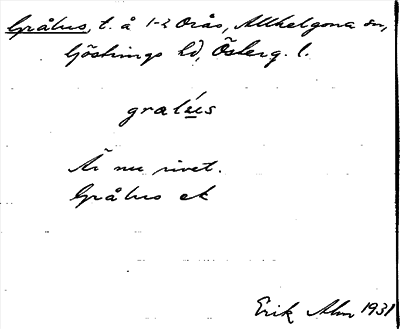 Gråhus, t. å 1-2 Orås, Allhelgona sn,
Göstrings hd, Österg. l.
Är nu rivet.
Gråhus ek
Erik Alm 1931